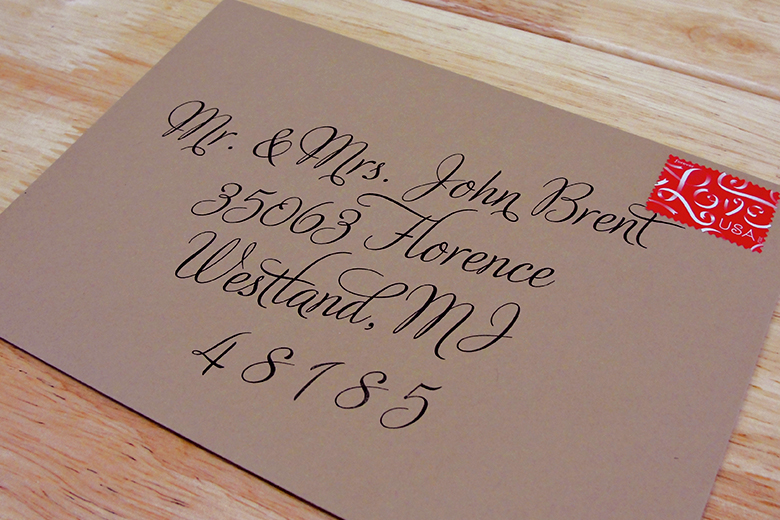 Mr. & Mrs. John Brent
35063 Florence
Westland, MI
48185
Forever
Love
USA